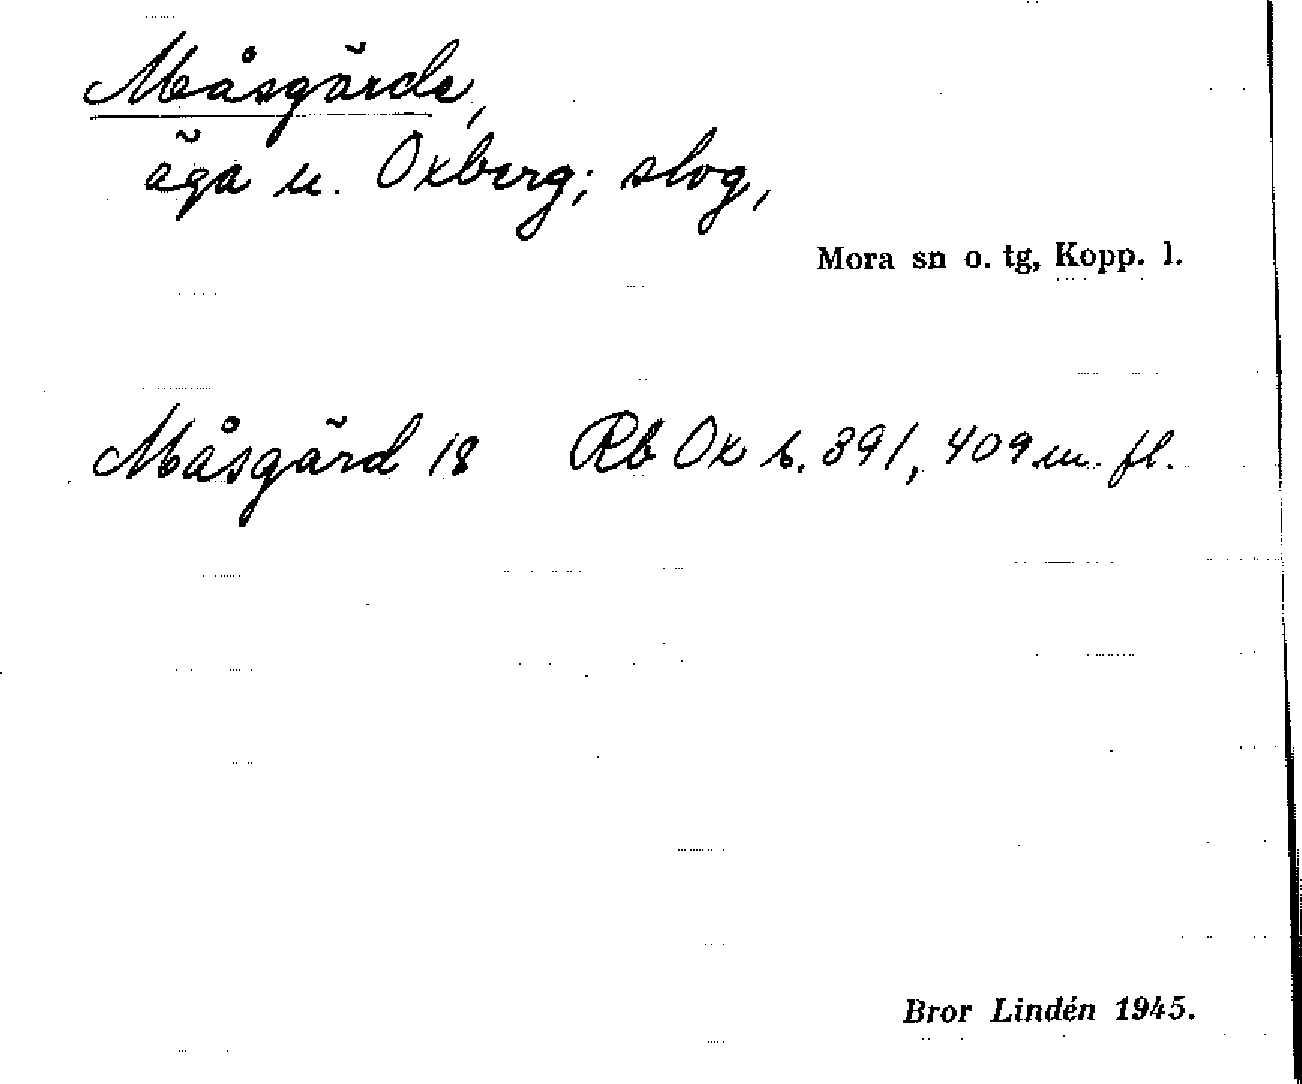 Måsgärde,
äga u. Oxberg; slog,
Mora sn o. tg, Kopp. l.
Måsgärd 18 Rb Ox b. 391, 409 m. fl.
Bror Lindén 1945.